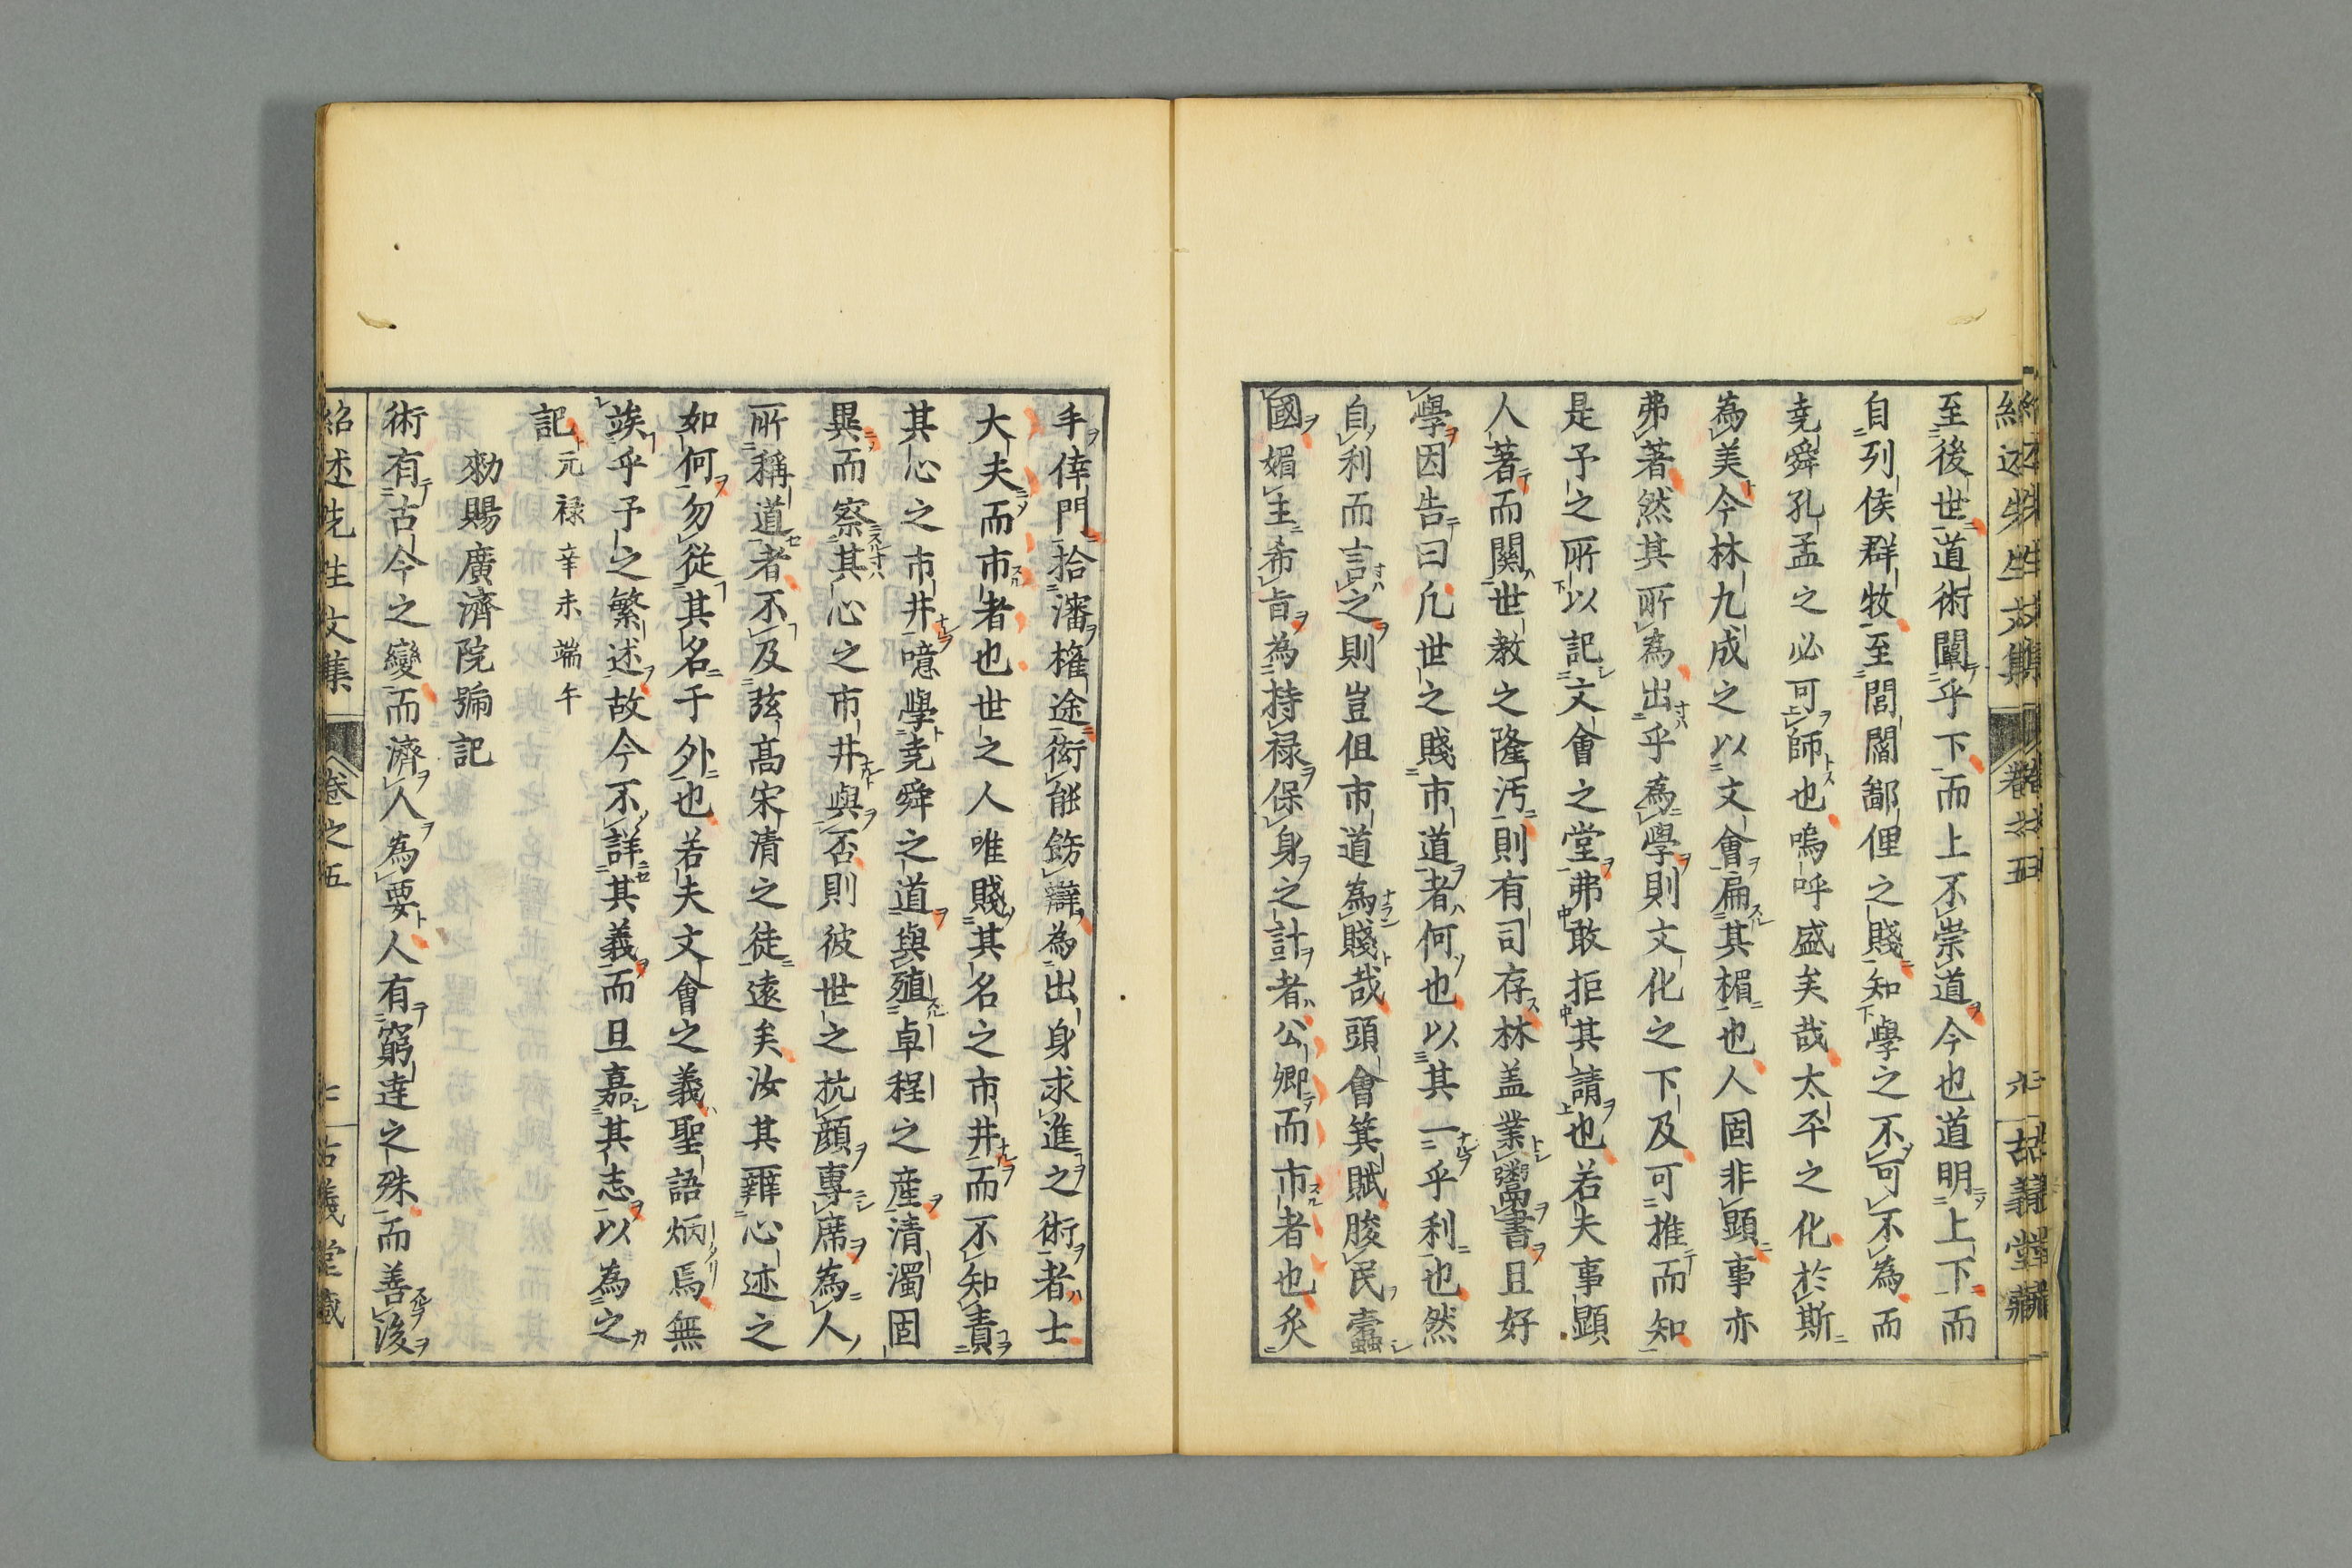 至後世道術闡乎下而上不崇道今也道明上下而
自列侯群牧至閭閻鄙俚之賤知學之不可不為而
堯舜孔孟之必可師也嗚呼盛矣哉太平之化於斯
為美今林九成之以文會扁其楣也人固非顕事亦
弗著然其所為出乎為學則文化之下及可推而知
是予之所以記文會之堂弗敢拒其請也若夫事顕
人著而關世教之隆汚則有司存林盖業鬻書且好
學因告曰凢世之賤市道者何也以其一乎利也然
自利而言之則豈但市道為賤哉頭會箕賦朘民蠹
國媚主希旨為持禄保身之計者公卿而市者也炙
手倖門拾瀋権途衒能餝辯為出身求進之術者士
大夫而市者也世之人唯賤其名之市井而不知責
其心之市井噫學堯舜之道與殖卓程之産清濁固
異而察其心之市井與否則彼世之抗顔專席為人
所稱道者不及弦高宋清之徒遠矣汝其雖心迹之
如何勿從其名于外也若夫文會之義聖語炳焉無
竢乎予之繁述故今不詳其義而且嘉其志以為之
記元禄辛未端午
勑賜廣濟院號記
術有古今之變而濟人為要人有窮達之殊而善後
紹述先生文集 卷之五 古義堂藏